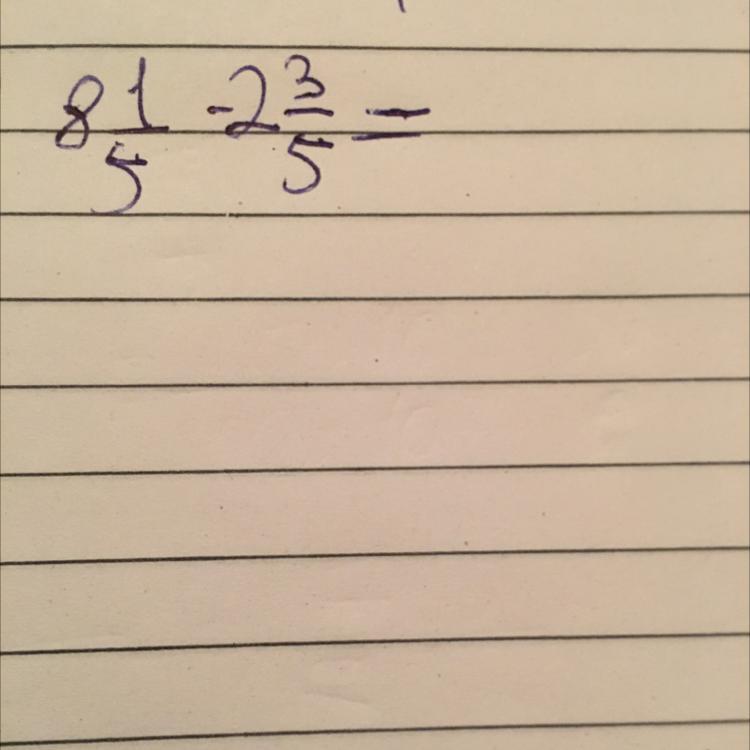 8 1/5 - 2 3/5 =